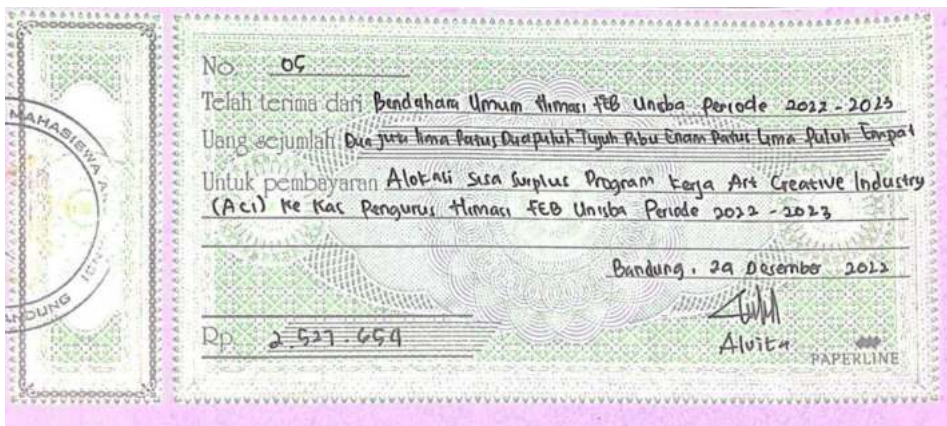 MAHASISWA A
NDUNG
No. 05
Telah terima dari Bendahara Umum Himasi FEB Unisba Periode 2022 - 2023
Uang sejumlah Dua Juta Lima Ratus Dua puluh Tujuh Ribu Enam Ratus Lima Puluh Empat
Untuk pembayaran Alokasi Sisa Surplus Program Kerja Art Creative Industry
(ACI) Ke Kas Pengurus Himasi FEB Unisba Periode 2022 - 2023
Bandung, 29 Desember 2022
Rp. 2.527.654
Alvita
PAPERLINE